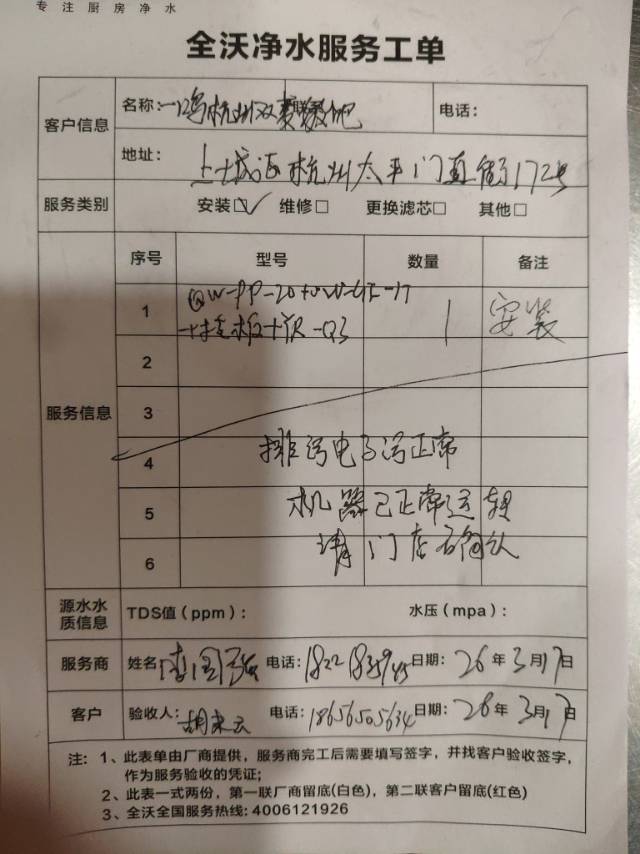 专注厨房净水
全沃净水服务工单
客户信息
名称: 一鸣杭州双菱 吧
电话:
地址: 上城区杭州太平门直街172号
服务类别
安装☑ 维修□ 更换滤芯□ 其他□
服务信息
序号 型号 数量 备注
1 QW-PP-20+QW-UF-17 1 安装
-Q3
2
3
4 排污电子阀正常
5 机器已正常运转
请门店确认
6
源水水质信息
TDS值(ppm): 水压(mpa):
服务商 姓名 电话: 日期: 26年3月17日
客户 验收人: 胡 云 电话: 18656505634 日期: 26年3月17日
注: 1、此表单由厂商提供，服务商完工后需要填写签字，并找客户验收签字，
作为服务验收的凭证;
2、此表一式两份，第一联厂商留底(白色)，第二联客户留底(红色)
3、全沃全国服务热线: 4006121926